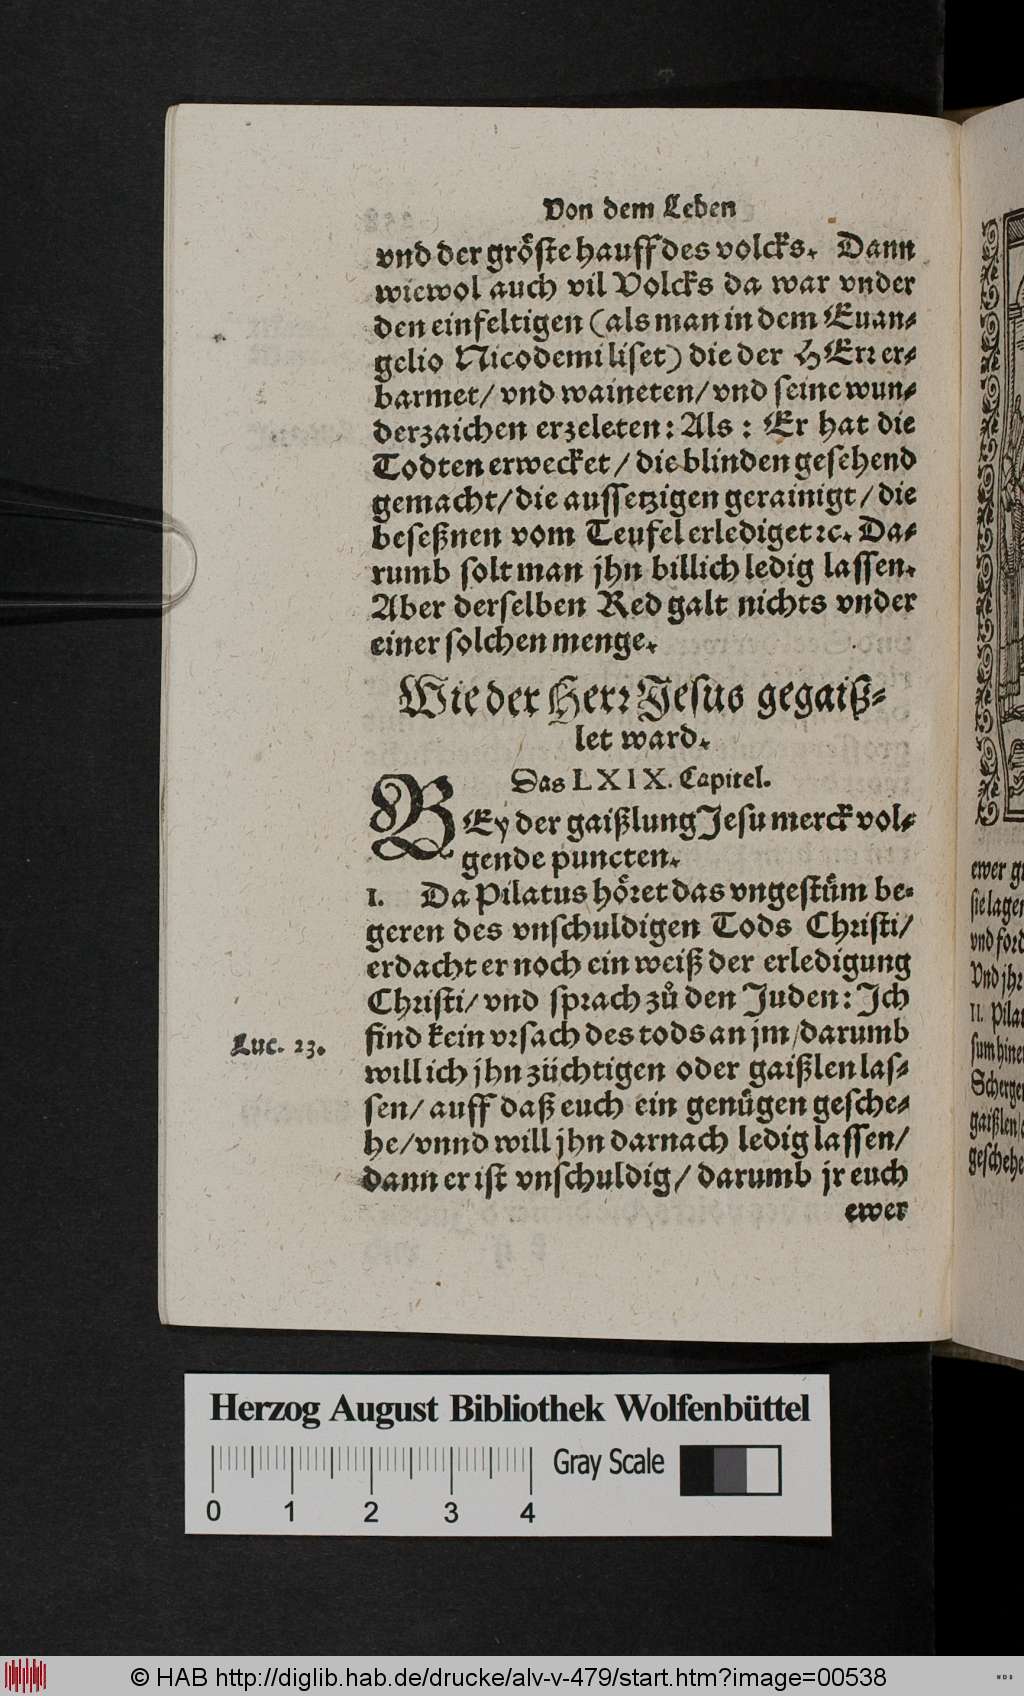 Von dem Leben
vnd der gröſte hauff des volcks. Dann
wiewol auch vil Volcks da war vnder
den einfeltigen (als man in dem Euan⸗
gelio Nicodemi liſet) die der HErr er⸗
barmet/ vnd waineten/ vnd ſeine wun⸗
derzaichen erzeleten: Als: Er hat die
Todten erwecket/ die blinden geſehend
gemacht/ die auſſetzigen gerainigt/ die
beſeßnen vom Teufel erlediget ꝛc. Da⸗
rumb ſolt man jhn billich ledig laſſen.
Aber derſelben Red galt nichts vnder
einer ſolchen menge.
Wie der Herr Jeſus gegaiß⸗
let ward.
Das LXIX. Capitel.
BEy der gaißlung Jeſu merck vol⸗
gende puncten.
I. Da Pilatus höret das vngeſtüm be⸗
geren des vnſchuldigen Tods Chriſti/
erdacht er noch ein weiß der erledigung
Chriſti/ vnd ſprach zů den Juden: Ich
find kein vrſach des tods an jm/ darumb
Luc. 23.
will ich jhn züchtigen oder gaißlen laſ⸗
ſen/ auff daß euch ein genügen geſche⸗
he/ vnnd will jhn darnach ledig laſſen/
dann er iſt vnſchuldig/ darumb jr euch
ewer
ewer
ſie lagen
vnd
Vnd jhr
II.
geſchehe
Herzog August Bibliothek Wolfenbüttel
Gray Scale
0 1 2 3 4
© HAB http://diglib.hab.de/drucke/alv-v-479/start.htm?image=00538